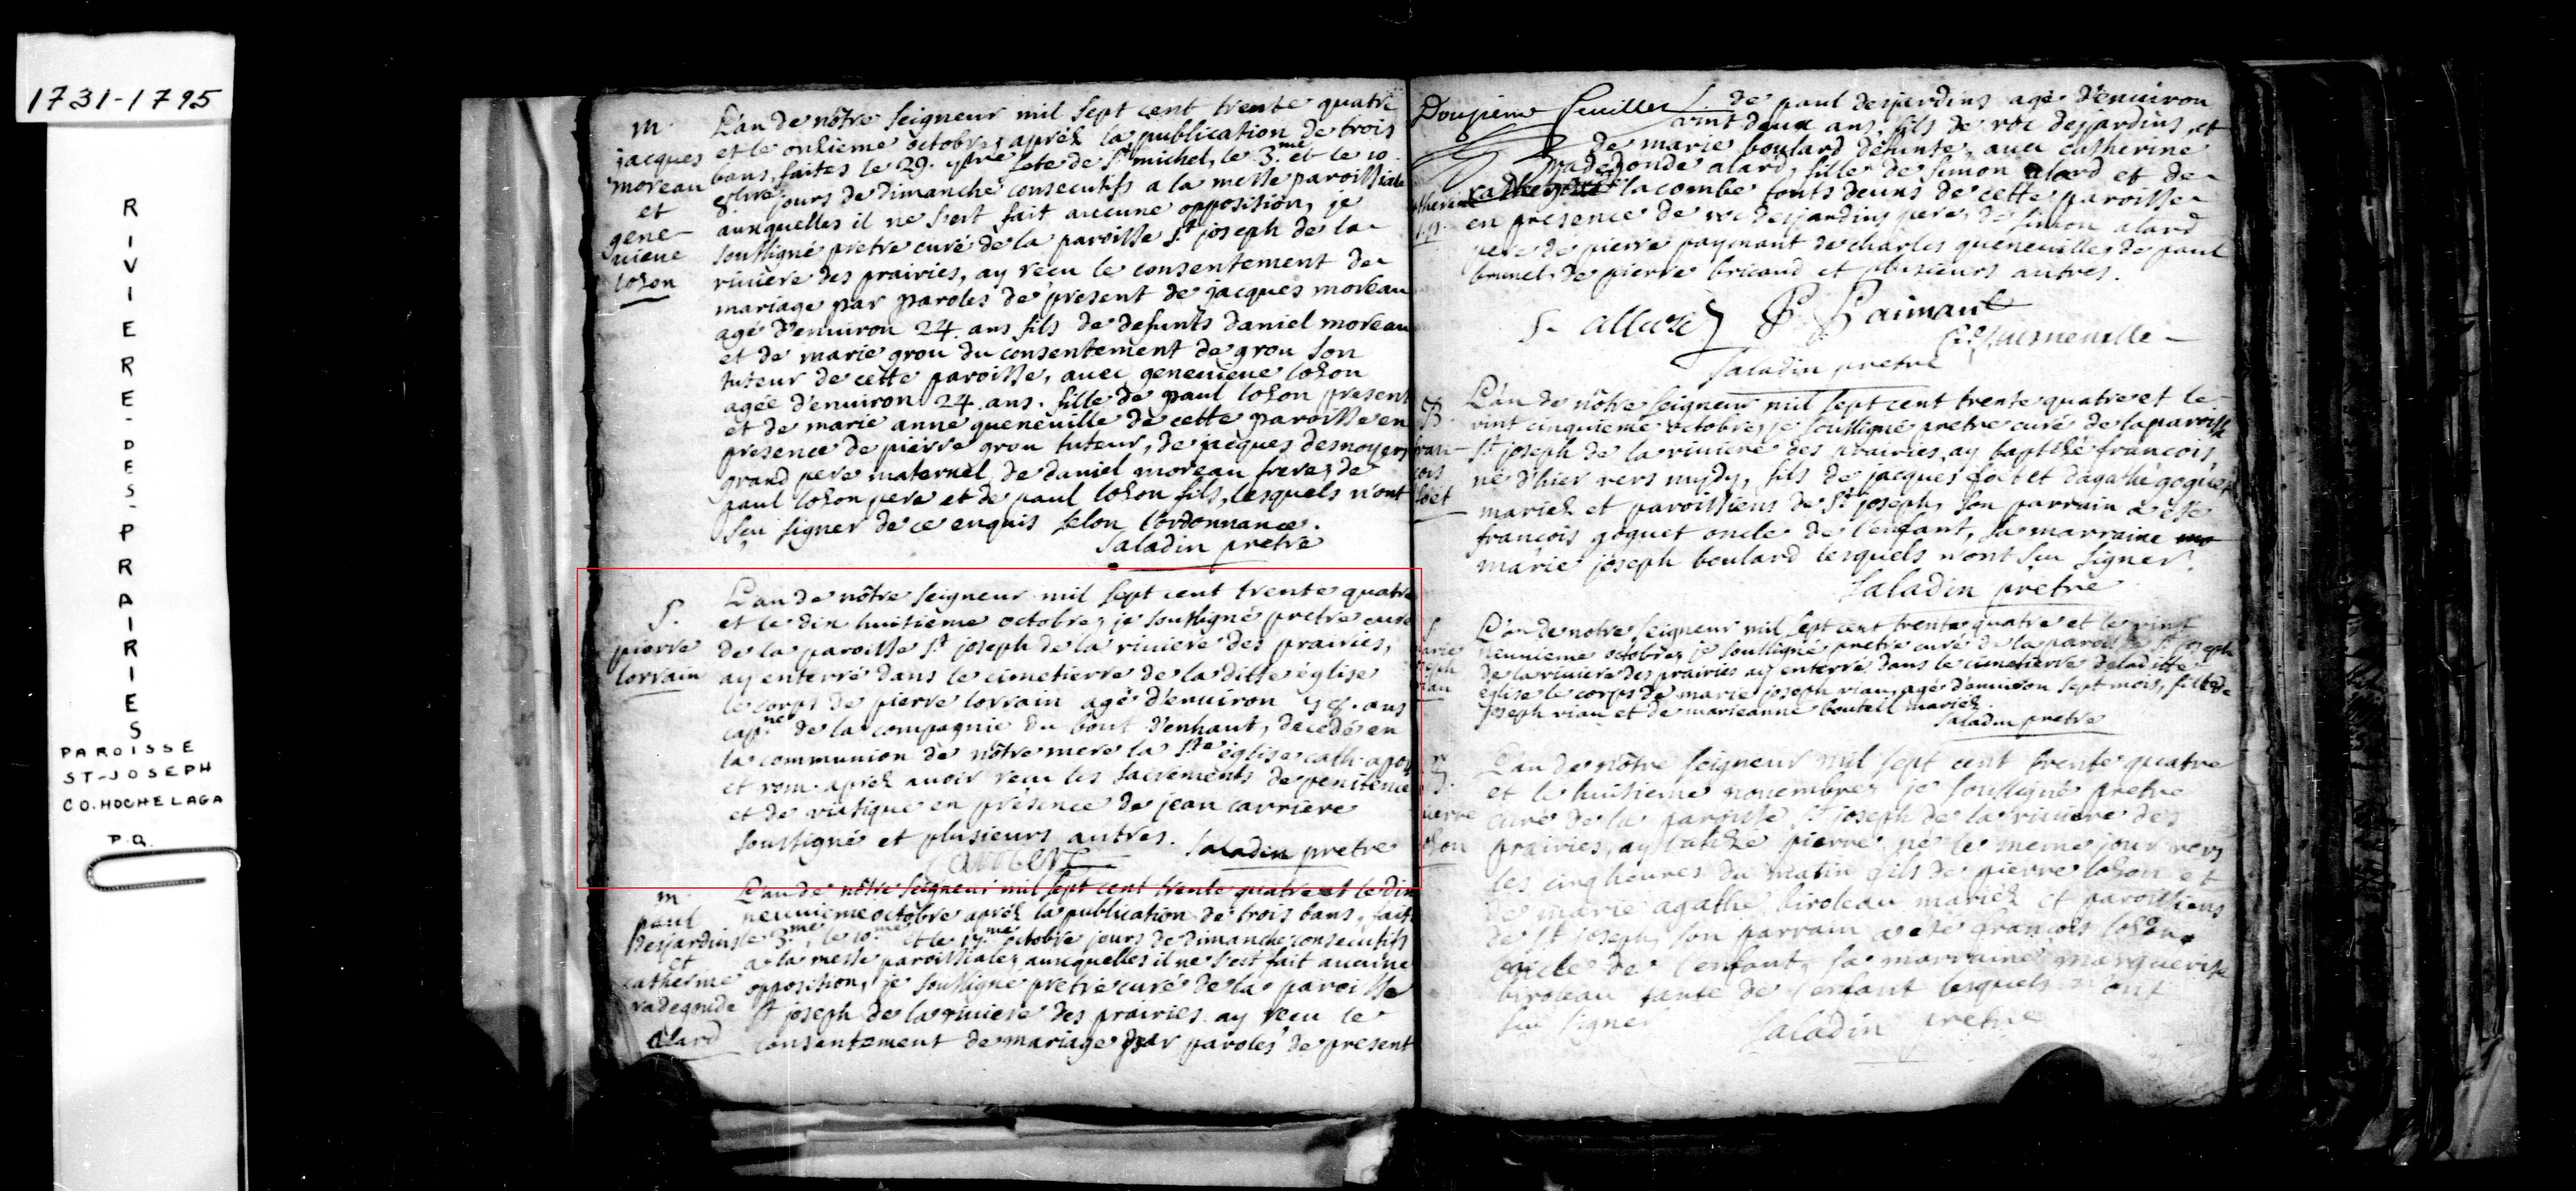 1731-1795
RIVIERE-DES-PRAIRIES
PAROISSE
ST-JOSEPH
CO. HOCHELAGA
P.Q.
m.
jacques
moreau
et
gene-
vieve
lozon
L'an de nôtre seigneur mil sept cent trente quatre
et le onzieme octobre, apréz la publication de trois
bans, faites le 29. 7bre fete de St michel, le 3.me et le 10
8bre jours de dimanche consecutifs a la messe paroissiale
auxquelles il ne s'est fait aucune opposition, je
soussigné pretre curé de la paroisse St joseph de la
riviere des prairies, ay recu le consentement de
mariage par paroles de present de jacques moreau
agé d'environ 24. ans fils de defunts daniel moreau
et de marie grou du consentement de grou son
tuteur de cette paroisse, avec genevieve lozon
agée d'environ 24. ans. fille de paul lozon present
et de marie anne queneville de cette paroisse en
presence de pierre grou tuteur, de jacques desnoyers
grand pere maternel, de daniel moreau frere, de
paul lozon pere et de paul lozon fils, lesquels n'ont
sçu signer de ce enquis selon l'ordonnance.
Saladin pretre
S.
pierre
lorrain
L'an de nôtre seigneur mil sept cent trente quatre
et le dix huitieme octobre, je soussigné pretre curé
de la paroisse St joseph de la riviere des prairies,
ay enterré dans le cimetierre de la ditte église
le corps de pierre lorrain agé d'environ 58. ans
cap.ne de la compagnie du bout d'enhaut, decedé en
la communion de nôtre mere la Ste église cath. apos
et rom. apréz avoir recu les sacrements de penitence
et de viatique en présence de jean carriere
soussigné et plusieurs autres. Saladin pretre
m.
paul
desjardins
et
catherine
radegonde
alard
L'an de nôtre seigneur mil sept cent trente quatre et le dix
neuvieme octobre apréz la publication de trois bans, fait
le 3.me, le 10.me et le 17.me octobre jours de dimanche consecutifs
a la messe paroissiale, auxquelles il ne s'est fait aucune
opposition, je soussigné pretre curé de la paroisse
St joseph de la riviere des prairies ay recu le
consentement de mariage par paroles de present
Douzieme feuillet S. de paul desjardins agé d'environ
vint deux ans, fils de roc desjardins et
de marie boulard defunte, avec catherine
radegonde alard, fille de simon alard et de
catherine lacombe touts deux de cette paroisse
en presence de roc desjardins pere, de simon alard
pere de pierre paymant de charles queneville, de paul
brunel, de pierre bricaud et plusieurs autres.
S. allard P. Paimant
Saladin pretre
B.
fran-
cois
L'an de nôtre seigneur mil sept cent trente quatre et le
vint cinquieme octobre, je soussigné pretre curé de la paroisse
St joseph de la riviere des prairies, ay baptizé francois,
né d'hier vers mydy, fils de jacques foët et d'agathe goguet
mariez et paroissiens de St joseph, son parrain a été
francois goguet oncle de l'enfant, sa marraine
marie joseph boulard lesquels n'ont sçu signer.
Saladin pretre
L'an de notre seigneur mil sept cent trente quatre et le vingt
neuvieme octobre, je soussigné pretre curé de la paroisse St joseph
de la riviere des prairies ay enterré dans le cimetierre de la ditte
église le corps de marie joseph riau, agé d'environ sept mois, fille de
joseph riau et de marie anne bouteil mariez.
Saladin pretre
L'an de nôtre seigneur mil sept cent trente quatre
et le huitieme novembre, je soussigné pretre
curé de la paroisse St joseph de la riviere des
prairies, ay batizé pierre né le meme jour vers
les cinq heures du matin fils de pierre lozon et
de marie agathe biroleau mariez et paroissiens
de St joseph, son parrain a été francois lozon
oncle de l'enfant, sa marraine marguerite
biroleau tante de l'enfant lesquels n'ont
sçu signer Saladin pretre